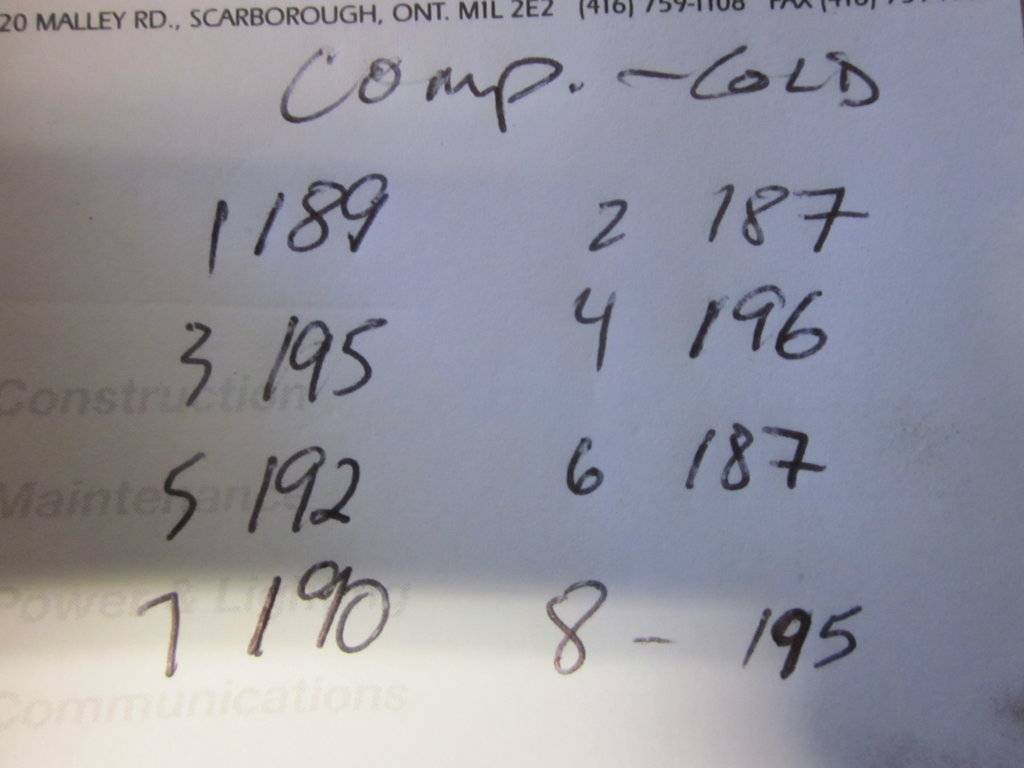 20 MALLEY RD., SCARBOROUGH, ONT. M1L 2E2 (416) 759-1108 FAX (416)
Comp. - COLD
1 189 2 187
3 195 4 196
Construction
5 192 6 187
Maintenance
7 190 8 - 195
Power & Lighting
Communications